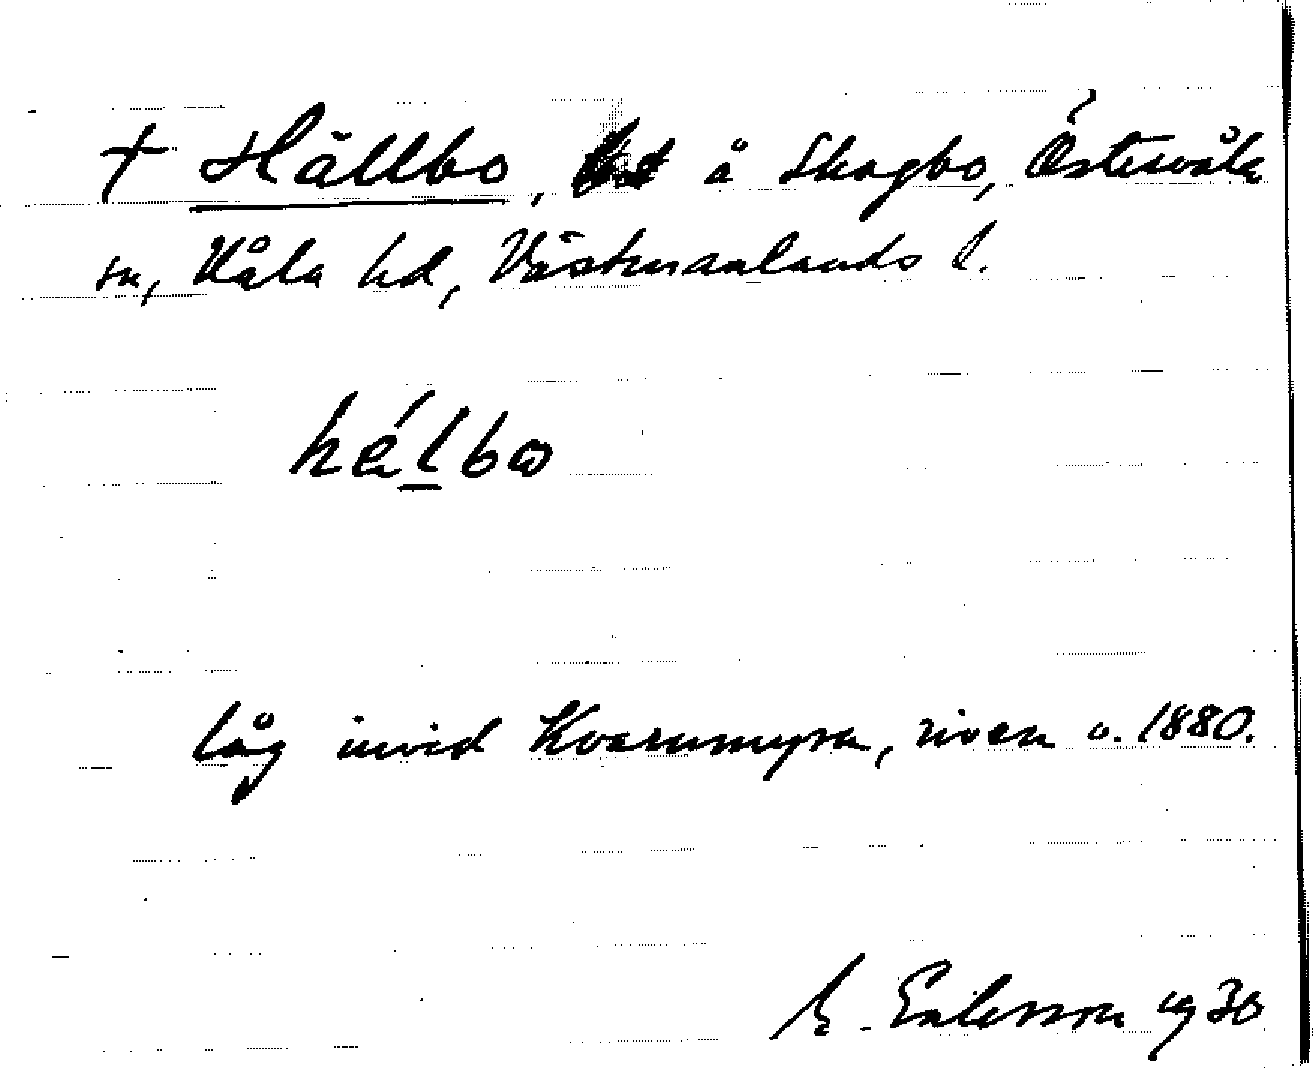 † Hällbo, å Skogbo, Östervåla
sn, Våla hd, Västmanlands l.
hélbω
låg invid Kvarnmyra, riven o. 1880.
E. Eriksson 1930